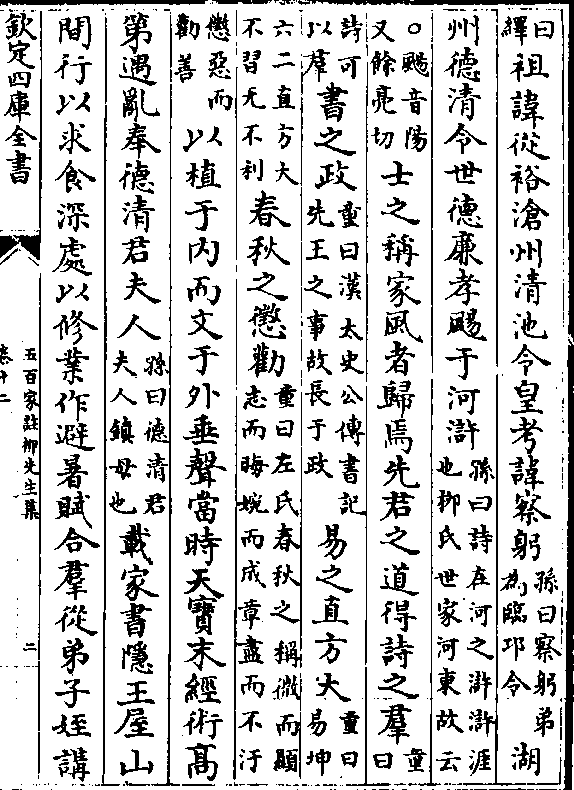 曰繹祖諱從裕滄州清池令皇考諱察躬孫曰察躬弟為臨邛令湖
州德清令世德廉孝颺于河滸孫曰詩在河之滸滸涯也柳氏世家河東故云
○颺音陽又餘亮切士之稱家風者歸焉先君之道得詩之羣童曰
詩可以羣書之政童曰漢太史公傳書記先王之事故長于政易之直方大童曰易坤
六二直方大不習无不利春秋之懲勸童曰左氏春秋之稱微而顯志而晦婉而成章盡而不汙
懲惡而勸善以植于内而文于外垂聲當時天寶末經術高
第遇亂奉德清君夫人孫曰德清君夫人鎮母也載家書隱王屋山
間行以求食深處以修業作避暑賦合羣從弟子姪講
欽定四庫全書
五百家註柳先生集
卷十二
二